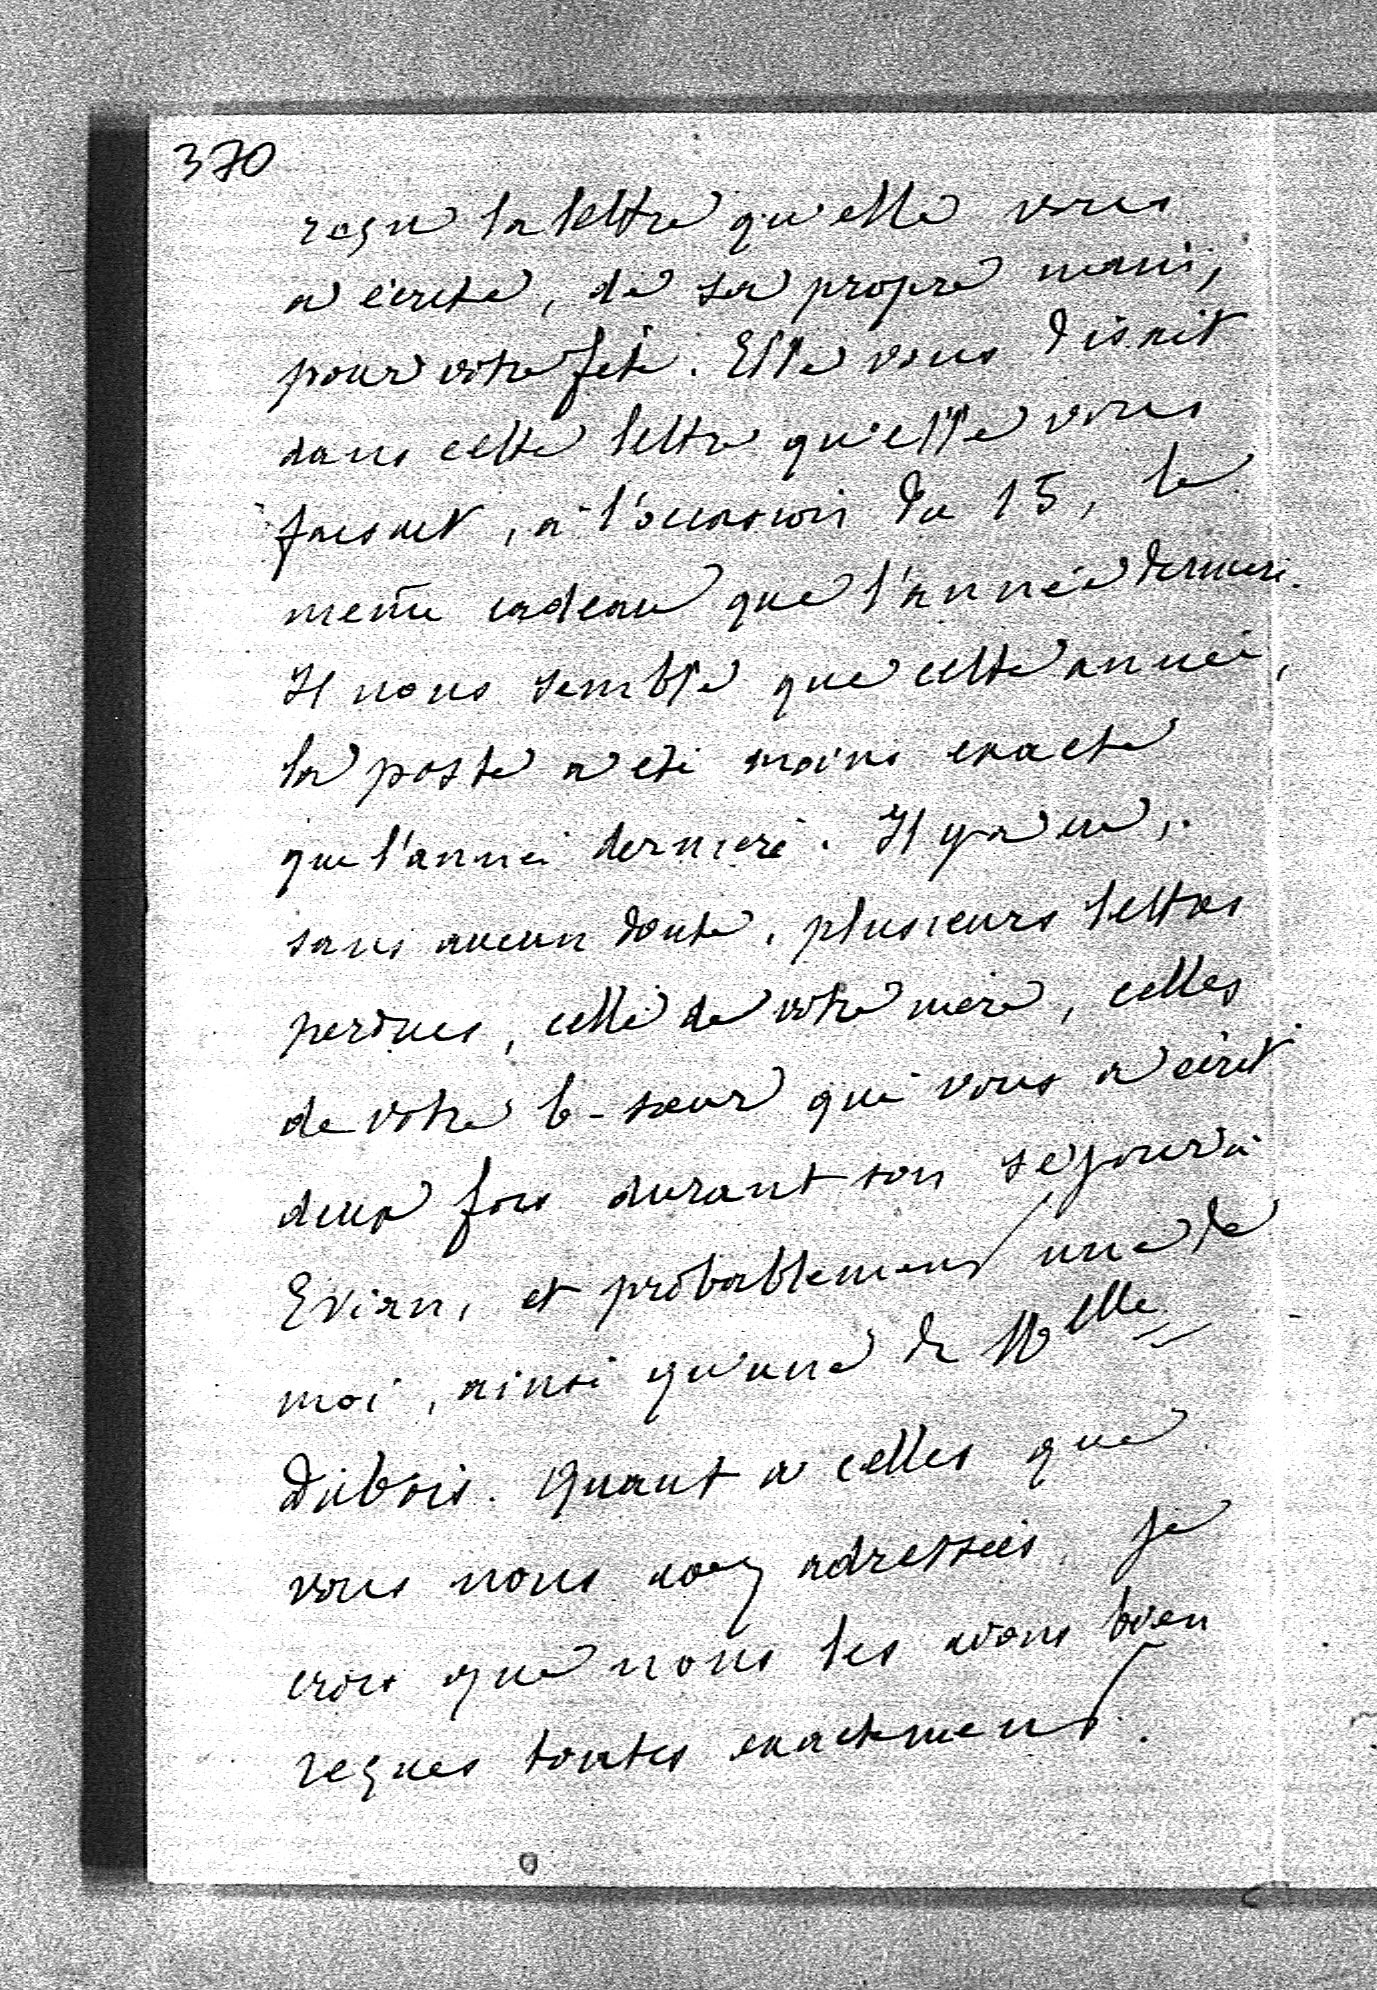 370
reçu la lettre qu'elle vous
a écrite, de sa propre main,
pour votre fête. Elle vous disait
dans cette lettre qu'elle vous
faisait, à l'occasion du 15, le
même cadeau que l'année dernière.
Il nous semble que cette année,
la poste a été moins exacte
que l'année dernière. Il y a eu,
sans aucun doute, plusieurs lettres
perdues, celle de votre mère, celles
de votre b-sœur qui vous a écrit
deux fois durant son séjour à
Evian, et probablement une de
moi, ainsi qu'une de Melle
Dubois. Quant à celles que
vous nous avez adressées, je
crois que nous les avons bien
reçues toutes exactement.